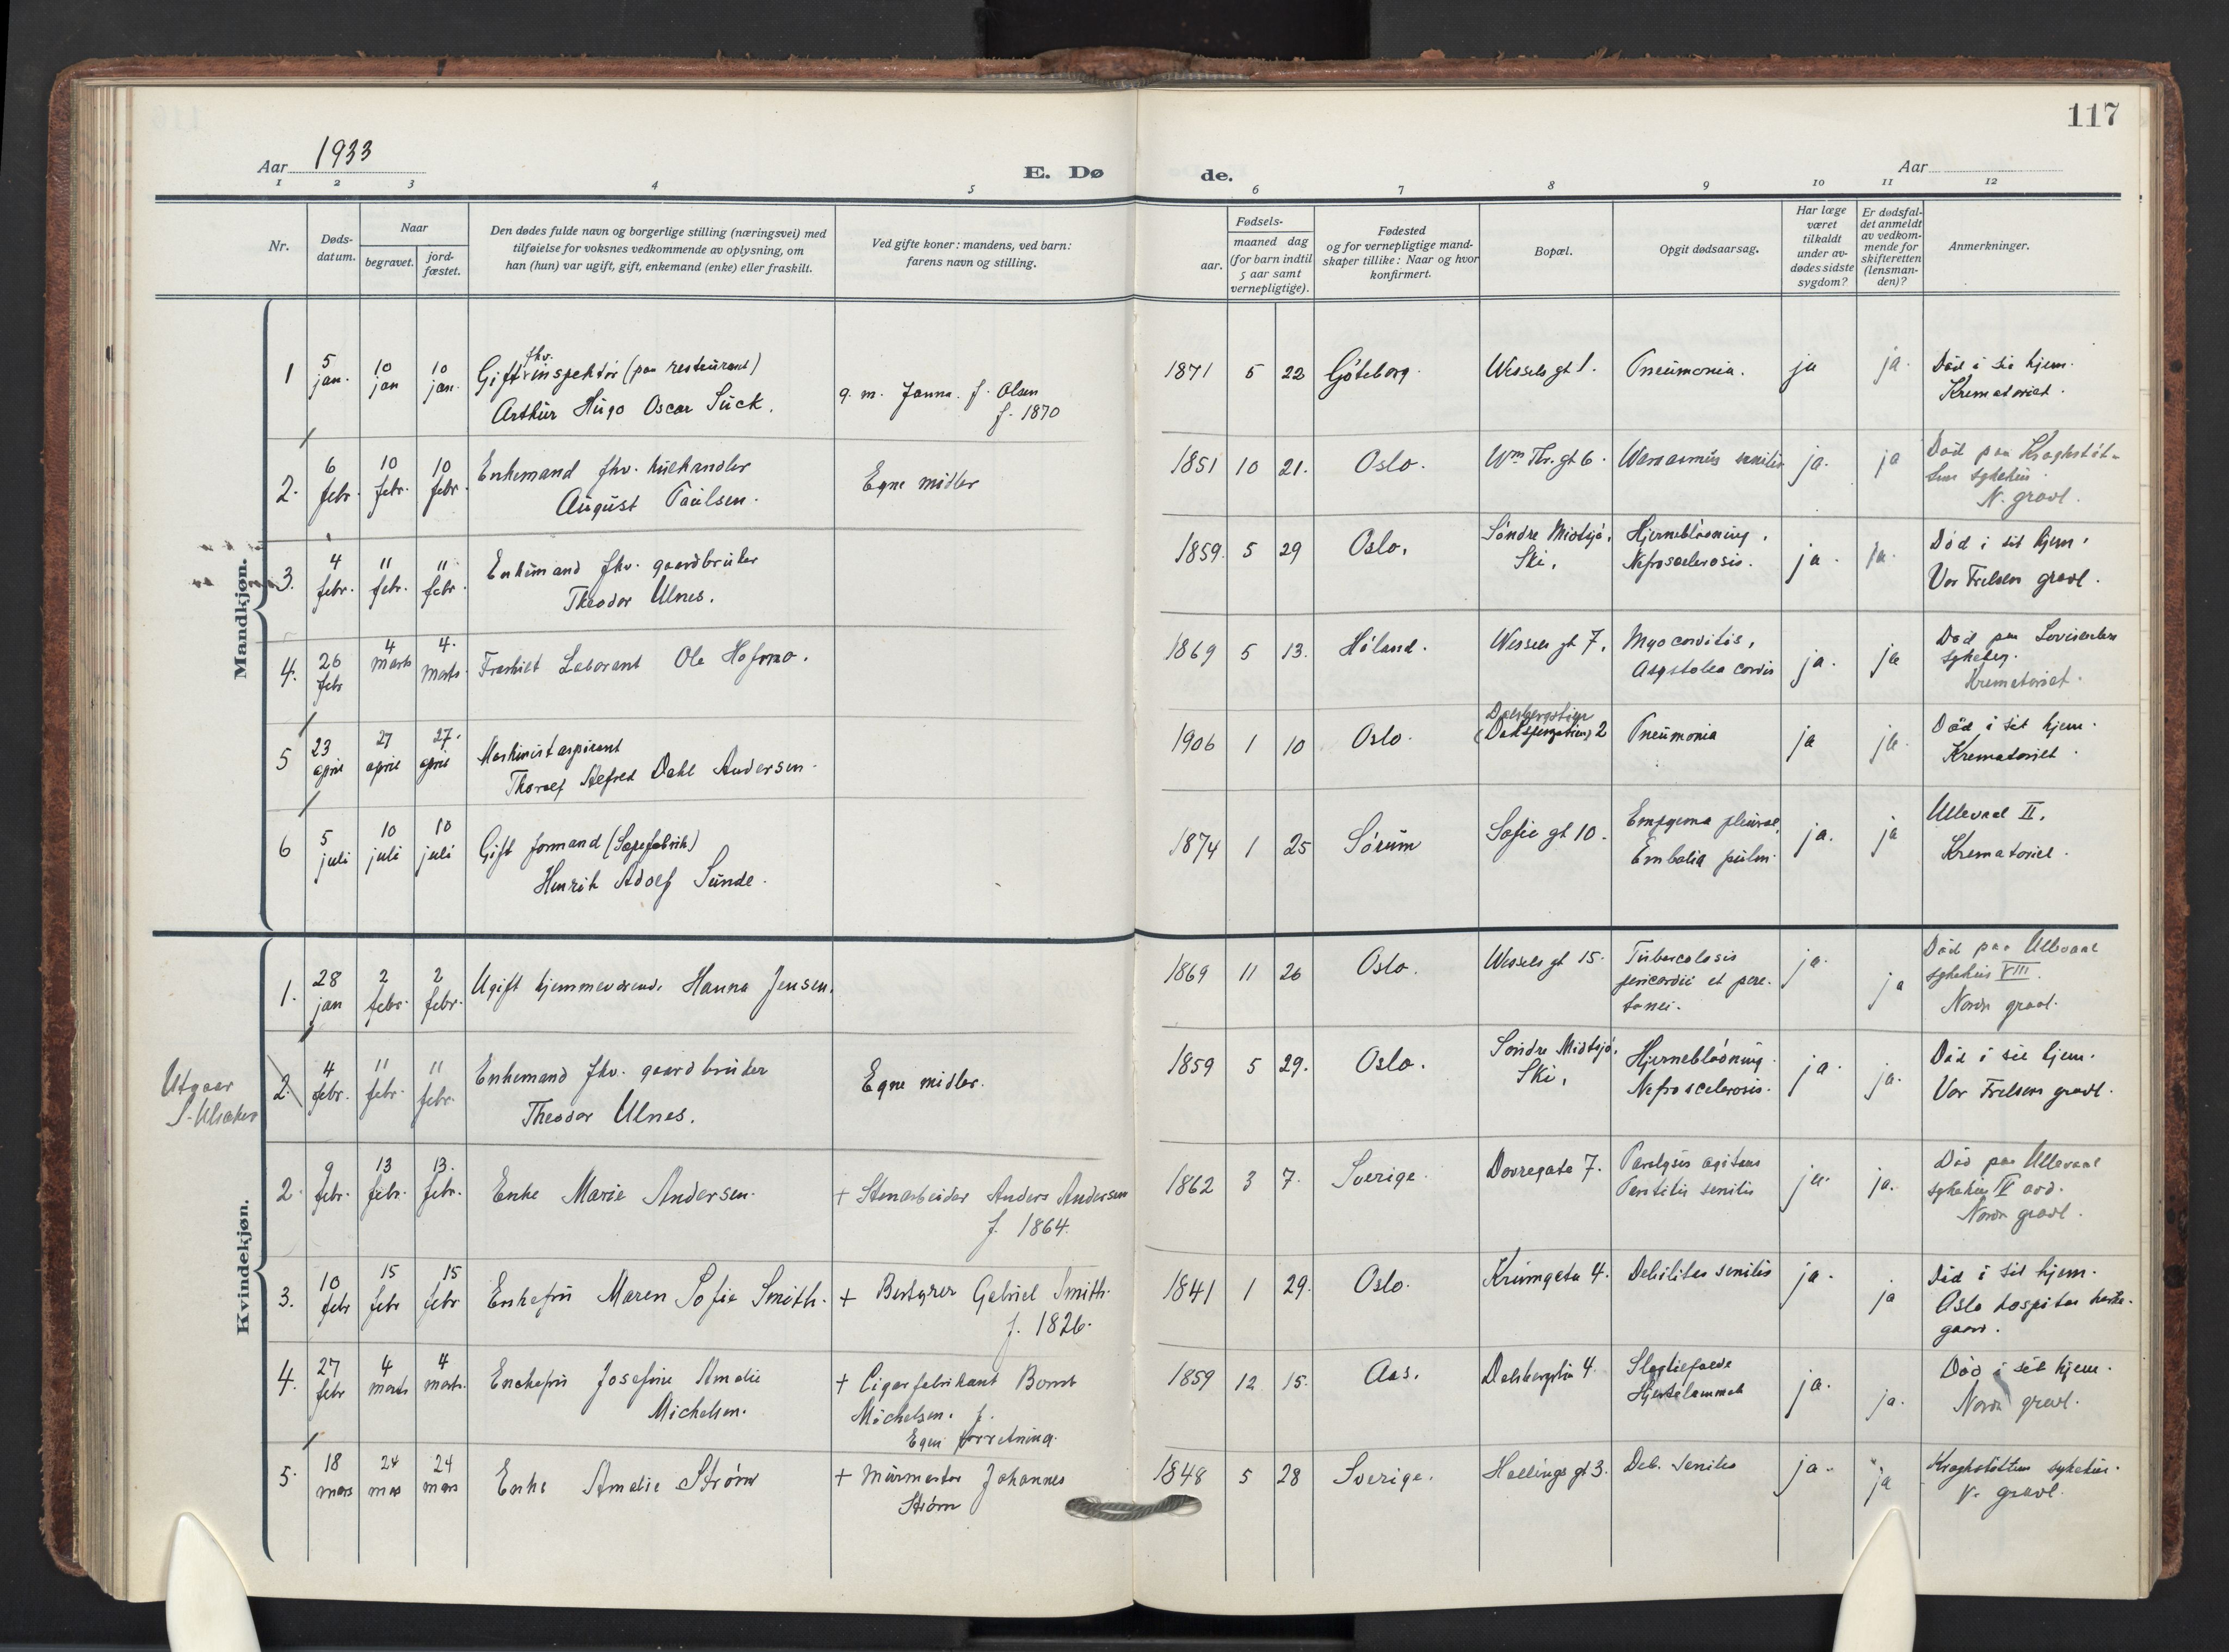 117
Aar 1933
E. Dø de.
Aar
1 2 3 4 5 6 7 8 9 10 11 12
Nr.
Døds-
datum.
Naar
begravet.
jord-
fæstet.
Den dødes fulde navn og borgerlige stilling (næringsvei) med
tilføielse for voksnes vedkommende av oplysning, om
han (hun) var ugift, gift, enkemand (enke) eller fraskilt.
Ved gifte koner: mandens, ved barn:
farens navn og stilling.
Fødsels-
aar.
maaned dag
(for barn indtil
5 aar samt
vernepligtige).
Fødested
og for vernepligtige mand-
skaper tillike: Naar og hvor
konfirmert.
Bopæl.
Opgit dødsaarsag.
Har læge
været
tilkaldt
under av-
dødes sidste
sygdom?
Er dødsfal-
det anmeldt
av vedkom-
mende for
skifteretten
(lensman-
den)?
Anmerkninger.
Mandkjøn.
1 5 jan. 10 jan 10 jan.
Gift fhv. inspektør (paa restaurant)
Arthur Hugo Oscar Sück.
g. m. Janna f. Olsen
f. 1870
1871 5 22 Göteborg. Wessels gt 1. Pneumonia. ja ja.
Død i sit hjem.
Krematoriet.
2. 6 febr. 10 febr. 10 febr.
Enkemand fhv.
August Paulsen.
Egne midler
1851 10 21. Oslo. Wm Thr. gt 6. senilis ja. ja
Død paa Kroghstøt-
tens sykehus
N. gravl.
3. 4 febr. 11 febr. 11 febr.
Enkemand fhv. gaardbruker
Theodor Ulnes.
1859. 5 29 Oslo. Søndre Midtsjø, Ski. Hjerneblødning. Nefrosclerosis. ja. ja.
Død i sit hjem.
Vor Frelsers gravl.
4. 26 febr 4 marts 4. marts.
Fraskilt Laborant Ole Hofsmo.
1869 5 13. Høland. Wessels gt 7. Myocarditis, Asystolea cordis ja. ja
Død paa Lovisenberg
sykehus.
Krematoriet.
5 23 april 27 april 27. april
Maskinistaspirant
Thoralf Alfred Dahl Andersen.
1906 1 10 Oslo. Dalsbergstien 2 Pneumonia ja ja.
Død i sit hjem.
Krematoriet.
6 5 juli 10 juli 10 juli
Gift formand (Sæpefabrik)
Henrik Adolf Sunde.
1874 1 25 Sørum Sofie gt 10. Empyema pleurae, Embolia pulm. ja. ja
Ullevaal II.
Krematoriet.
Kvindekjøn.
1. 28 jan 2 febr. 2 febr.
Ugift hjemmeværende Hanna Jensen.
1869 11 26 Oslo. Wessels gt 15. Tuberculosis pericardii et pere- tonei. ja. ja
Død paa Ullevaal
sykehus VIII.
Nordre gravl.
Utgaar
2. 4 febr. 11 febr. 11 febr.
Enkemand fhv. gaardbruker
Theodor Ulnes.
Egne midler.
1859 5 29. Oslo. Søndre Midtsjø, Ski. Hjerneblødning. Nefroscelerosis. ja. ja.
Død i sit hjem.
Vor Frelsers gravl.
2. 9 febr. 13 febr. 13. febr.
Enke Marie Andersen.
+ Stenarbeider Anders Andersen
f. 1864.
1862 3 7. Sverige. Dovregata 7. Paralysis agitans senilis ja. ja.
Død paa Ullevaal
sykehus IV avd.
Nordre gravl.
3. 10 febr 15 febr 15 febr
Enkefru Maren Sofie Smith.
+ Bestyrer Gabriel Smith.
f. 1826.
1841 1 29. Oslo. Krumgata 4. Debilitas senilis ja. ja
Død i sit hjem.
Oslo hospitas kirke-
gaard.
4. 27 febr 4 marts 4 marts.
Enkefru Josefine Amalie
Michelsen.
+ Cigarfabrikant
Michelsen. f.
Egen forretning.
1859 12 15. Aas. Dalsbergstien 4. Slagtilfælde Hjertelammet ja. ja.
Død i sit hjem.
Nordre gravl.
5. 18 mars 24 mars 24 mars
Enke Amalie Strøm
+ Murmester Johannes
Strøm
1848 5 28 Sverige. Hallings gt 3. Deb. senilis ja. ja
Kroghstøttens sykehus.
V. gravl.